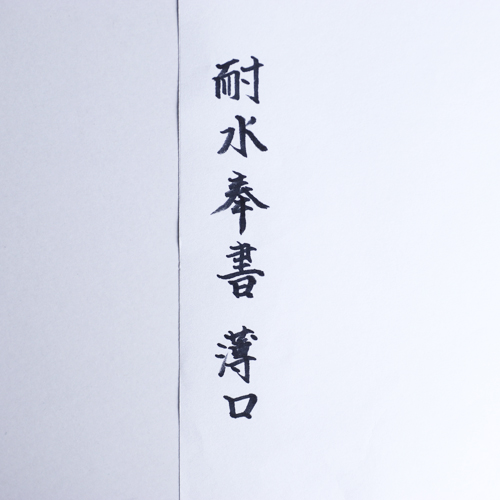 耐水奉書 薄口